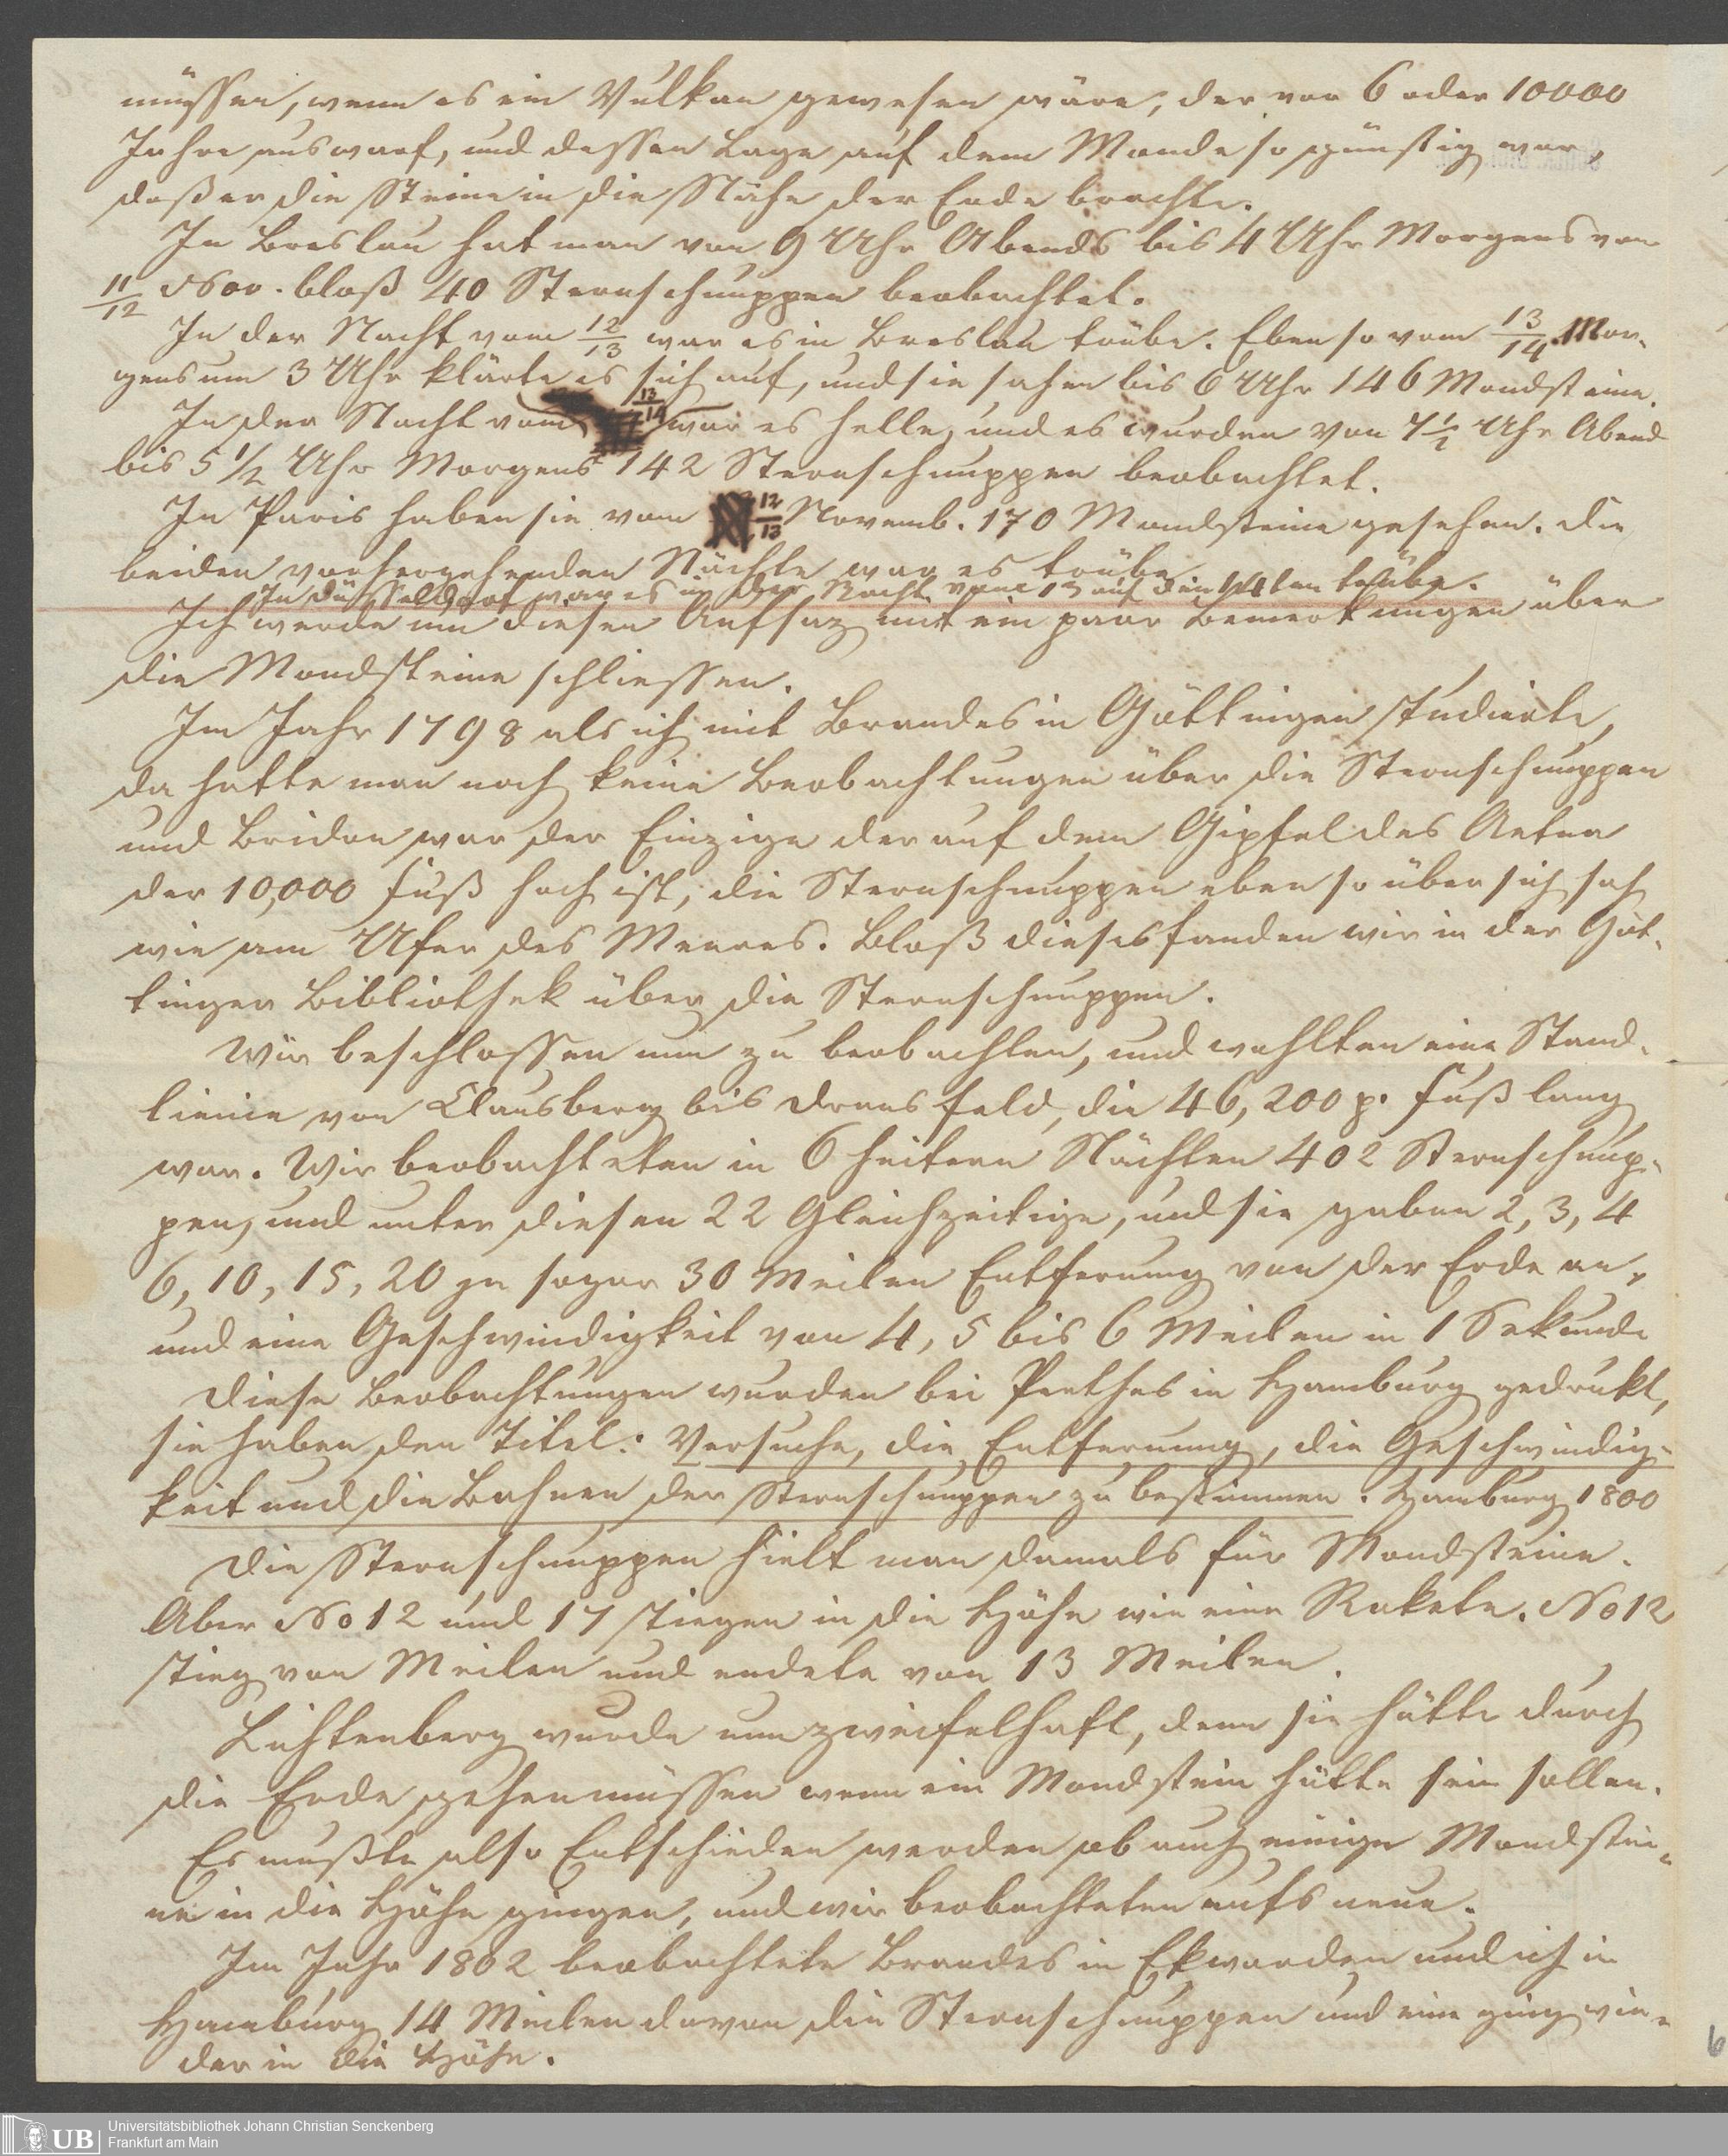 müssen, wenn es ein Vulkan gewesen wäre, der vor 6 oder 10000
Jahre auswarf, und dessen Lage auf dem Monde so günstig war,
daß er die Steine in die Nähe der Erde brachte.
In Breslau hat man von 9 Uhr Abends bis 4 Uhr Morgens vom
11/12 Nov. bloß 40 Sternschnuppen beobachtet.
In der Nacht vom 12/13 war es in Breslau trübe. Eben so vom 13/14. Mor-
gens um 3 Uhr klärte es sich auf, und sie sahen bis 6 Uhr 146 Mondsteine.
In der Nacht vom 13/14 war es helle, und es wurden von 7 1/2 Uhr Abend
bis 5 1/2 Uhr Morgens 142 Sternschnuppen beobachtet.
In Paris haben sie vom 12/13 Novemb. 170 Mondsteine gesehen. Die
beiden vorhergehenden Nächte war es trübe.
In Düsseldorf war es in der Nacht vom 13 auf den 14ten trübe.
Ich werde nun diesen Aufsaz mit ein paar Bemerkungen über
die Mondsteine schliessen.
Im Jahr 1798 als ich mit Brandes in Göttingen studierte,
da hatte man noch keine Beobachtungen über die Sternschnuppen
und Bridon war der Einzige der auf dem Gipfel des Aetna
der 10,000 Fuß hoch ist, die Sternschnuppen eben so über sich sah
wie am Ufer des Meeres. Bloß dieses fanden wir in der Göt-
tinger Bibliothek über die Sternschnuppen.
Wir beschlossen nun zu beobachten, und wahlten eine Stand-
linie von Clausberg bis Dransfeld, die 46,200 p. Fuß lang
war. Wir beobachteten in 6 heitern Nächten 402 Sternschnup-
pen, und unter diesen 22 Gleichzeitige, und sie gaben 2, 3, 4
6, 10, 15, 20 ja sogar 30 Meilen Entfernung von der Erde an,
und eine Geschwindigkeit von 4, 5 bis 6 Meilen in 1 Sekunde
Diese Beobachtungen wurden bei Perthes in Hamburg gedrukt,
sie haben den Titel: Versuche, die Entfernung, die Geschwindig-
keit und die Bahnen der Sternschnuppen zu bestimmen. Hamburg 1800
Die Sternschnuppen hielt man damals für Mondsteine.
Aber No 12 und 17 stiegen in die Höhe wie eine Rakete. No 12
stieg von Meilen und endete von 13 Meilen.
Lichtenberg wurde nun zweifelhaft, denn sie hätte durch
die Erde gehen müssen wenn ein Mondstein hätte sein sollen.
Es mußte also Entschieden werden ob auch einige Mondstei-
ne in die Höhe gingen, und wir beobachteten aufs neue.
Im Jahr 1802 beobachtete Brandes in Ekwarden und ich in
Hamburg 14 Meilen davon die Sternschnuppen und eine ging wie-
der in die Höhe.
6
UB
Universitätsbibliothek Johann Christian Senckenberg
Frankfurt am Main